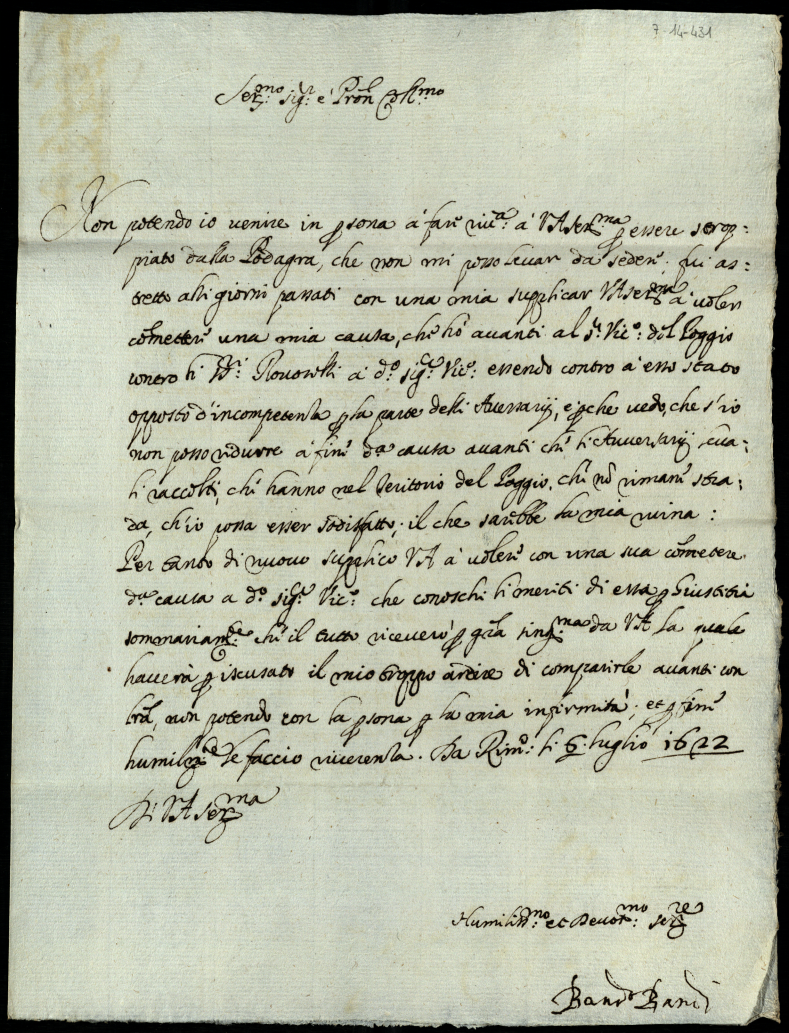 7-14-431
Ser.mo sig.r e Pron Col.mo
Non potendo io venire in psona à fare riv.a à VA Ser.ma p essere strop:
piato dalla Podagra, che non mi posso levar da sedere; fui as:
tretto alli giorni passati con una mia supplicar VA Ser.ma à voler
cõmetter una mia causa, che hò avanti al s.r Vic.o del Poggio
contro li Rovorelli à d.o sig.r Vic.o essendo contro à esso stato
opposto d'incompetenza p la parte delli Aversarij, e pche vedo, che s'io
non posso ridurre à fine d.a causa avanti che li Avversarij,
li raccolti, che hanno nel Teritorio del Poggio, che nõ rimane stra:
da, ch'io possa esser sodisfatto; il che sarebbe la mia ruina:
Per tanto di nuovo supplico VA à voler con una sua cõmetere
d.a causa a d.o sig.r Vic.o che conoschi li meriti di essa p Giustitia
sommariam.te che il tutto riceverò p gra sing.ma da VA la quale
haverà p iscusato il mio troppo ardire di comparirle avanti con
lra, non potendo con la psona p la mia infirmità; et p fine
humilm.te le faccio riverenza. Da Rim.o li 6 luglio 1622
Di VA ser.ma
Humiliss.mo et Devot.mo ser.re
Band.o Bandi